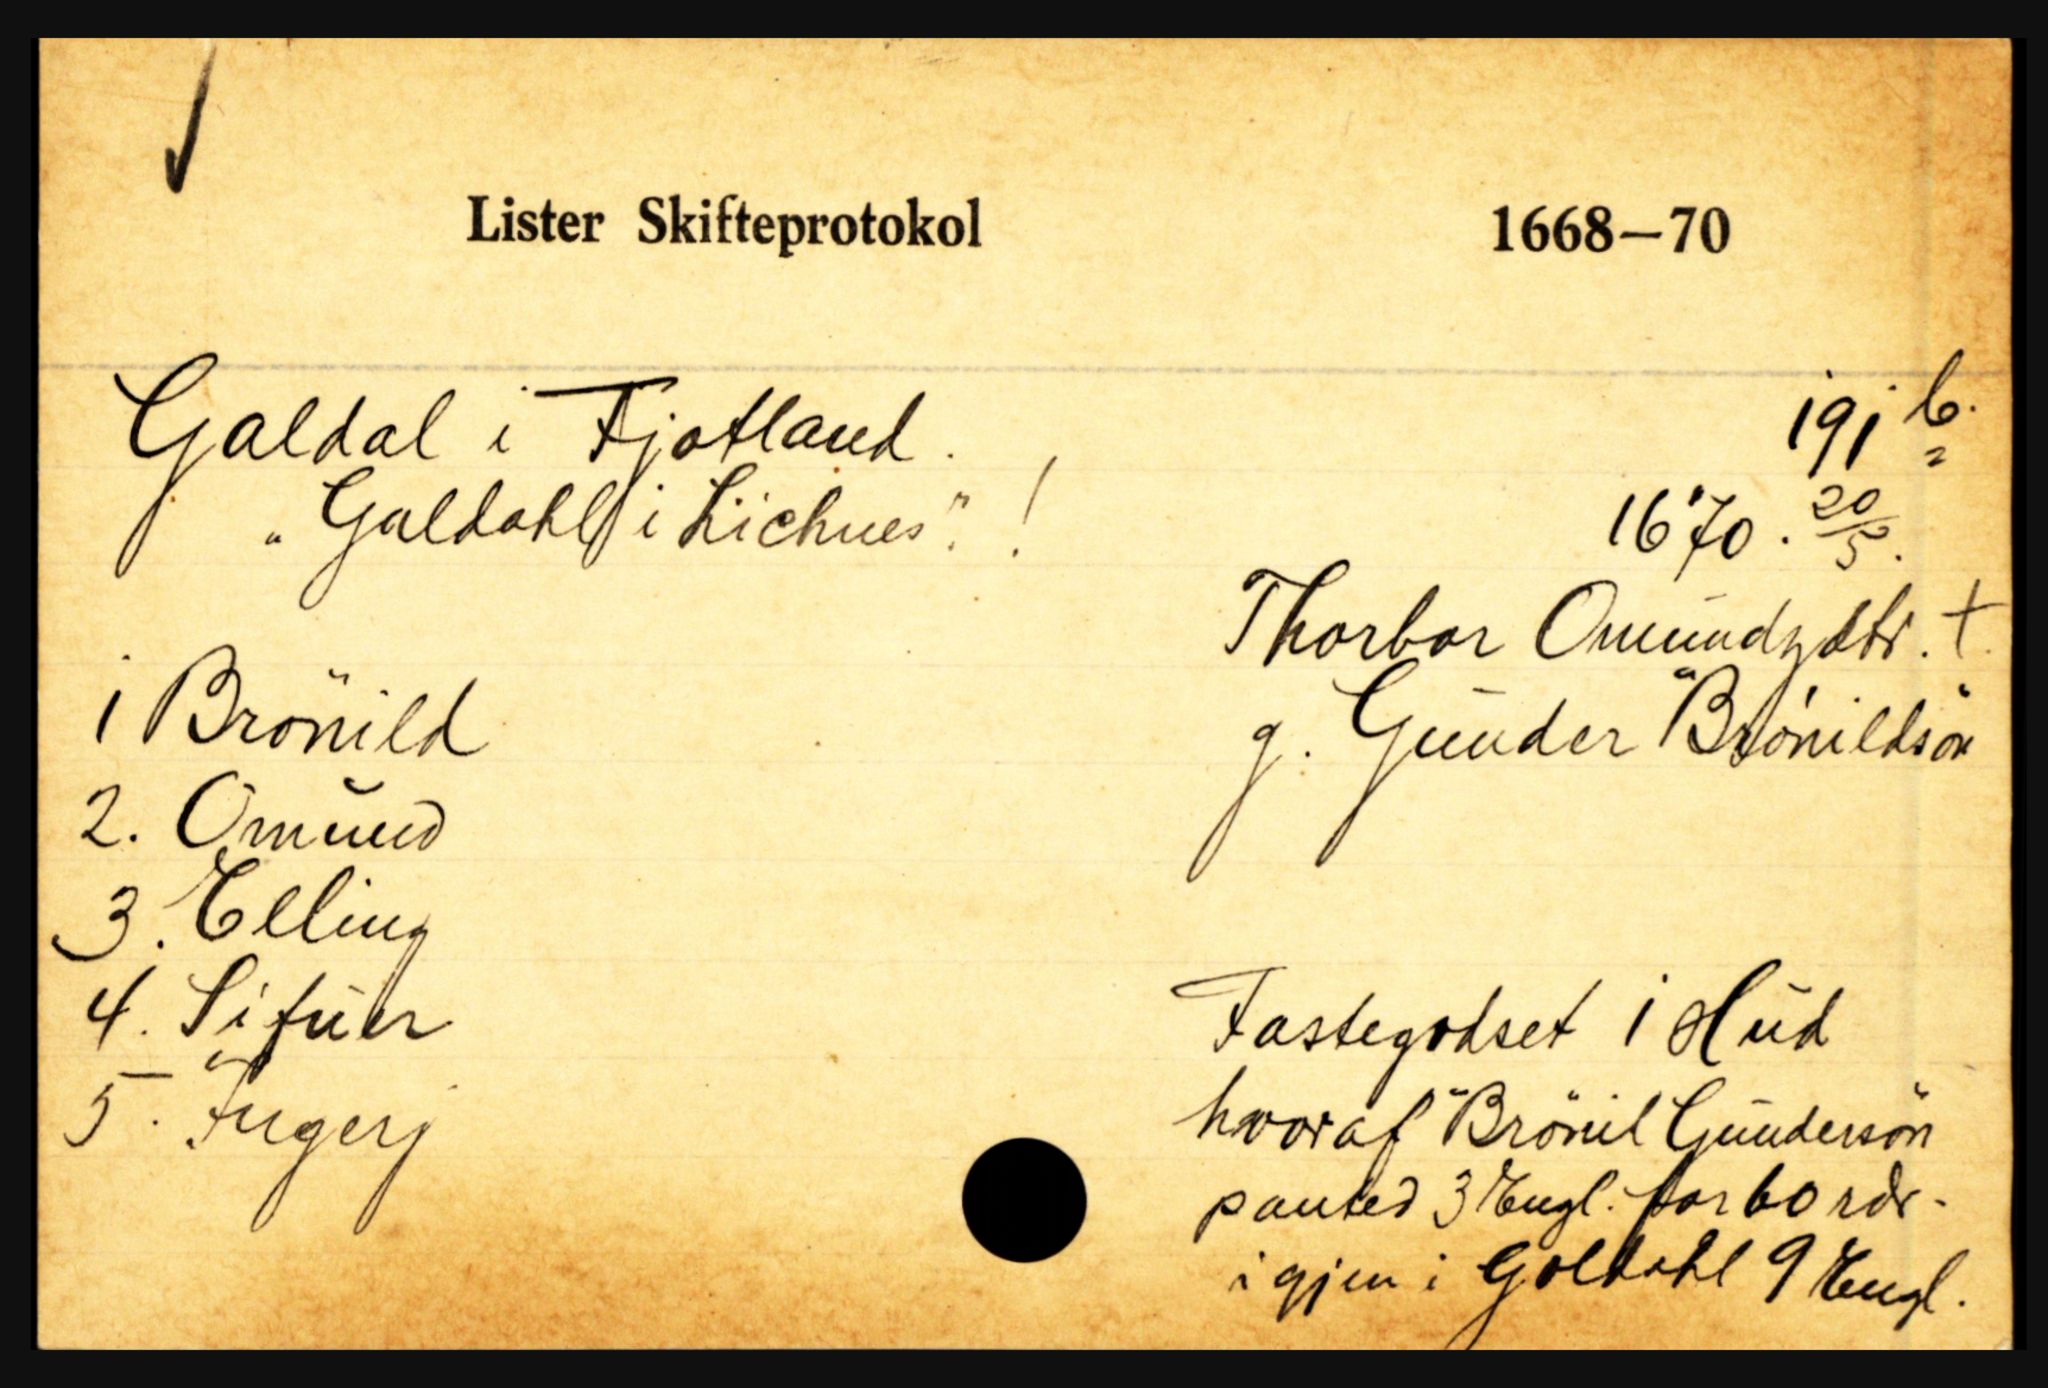 Lister Skifteprotokol 1668–70
Galdal i Fjotland. 191 b.
"Galdahl i Lichnes". !
1670. 20/5.
Thorbor Omundzdtr. †.
g. Gunder Brönildsön
1 Brönild
2. Omund
3. Elling
4. Sifuer
5. Ingerj
Fastegodset i Hud
hvoraf Brönil Gundersön
panted 3 Engl. for 60 rdr.
igjen i Goldahl 9 Engl.